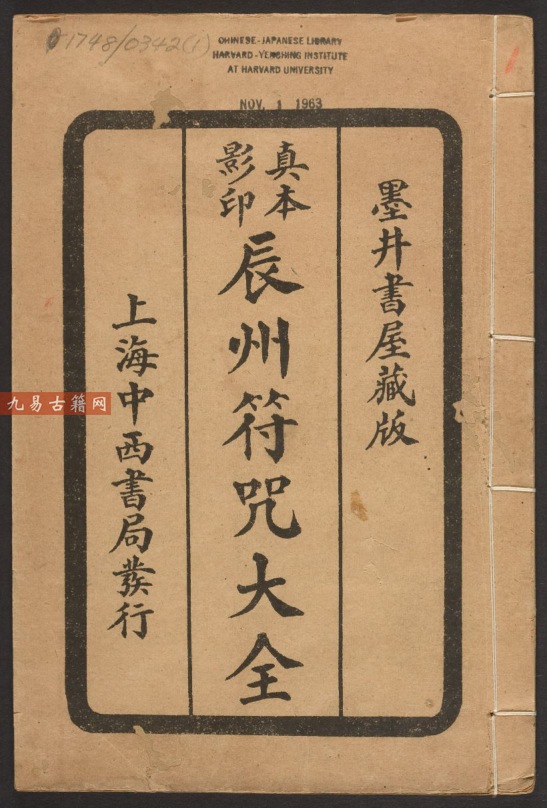 1748/0342(1)
CHINESE-JAPANESE LIBRARY
HARVARD-YENCHING INSTITUTE
AT HARVARD UNIVERSITY
NOV. 1 1963
墨井書屋藏版
真本
影印
辰州符咒大全
上海中西書局發行
九易古籍网